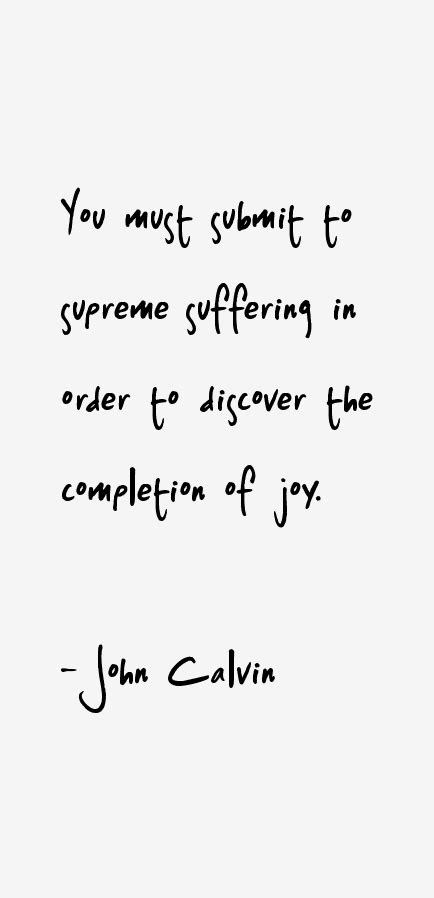 You must submit to
supreme suffering in
order to discover the
completion of joy.
- John Calvin